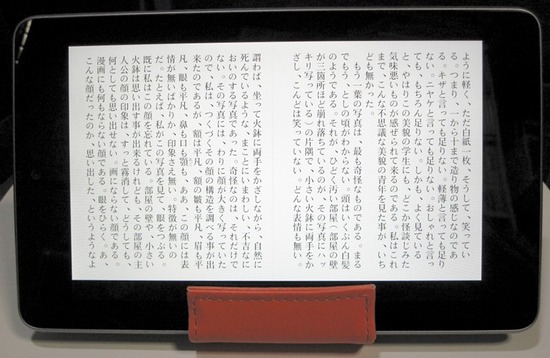 ように軽く、ただ白紙一枚、そうして、笑ってい
る。つまり、一から十まで造り物の感じなのであ
る。キザと言っても足りない。軽薄と言っても足り
ない。ニヤケと言っても足りない。おしゃれと言っ
ても、もちろん足りない。しかも、よく見ている
と、やはりこの美貌の学生にも、どこか怪談じみた
気味悪いものが感ぜられて来るのである。私はこれ
まで、こんな不思議な美貌の青年を見た事が、いち
ども無かった。
もう一葉の写真は、最も奇怪なものである。まる
でもう、としの頃がわからない。頭はいくぶん白髪
のようである。それが、ひどく汚い部屋(部屋の壁
が三箇所ほど崩れ落ちているのが、その写真にハッ
キリ写っている)の片隅で、小さい火鉢に両手をか
ざし、こんどは笑っていない。どんな表情も無い。
謂わば、坐って火鉢に両手をかざしながら、自然に
死んでいるような、まことにいまわしい、不吉なに
おいのする写真であった。奇怪なのは、それだけで
ない。その写真には、わりに顔が大きく写っていた
ので、私は、つくづくその顔の構造を調べる事が出
来たのであるが、額は平凡、額の皺も平凡、眉も平
凡、眼も平凡、鼻も口も顎も、ああ、この顔には表
情が無いばかりか、印象さえ無い。特徴が無いの
だ。たとえば、私がこの写真を見て、眼をつぶる。
既に私はこの顔を忘れている。部屋の壁や、小さい
火鉢は思い出す事が出来るけれども、その部屋の主
人公の顔の印象は、すっと霧消して、どうしても、
何としても思い出せない。画にならない顔である。
漫画にも何もならない顔である。眼をひらく。あ、
こんな顔だったのか、思い出した、というようなよ